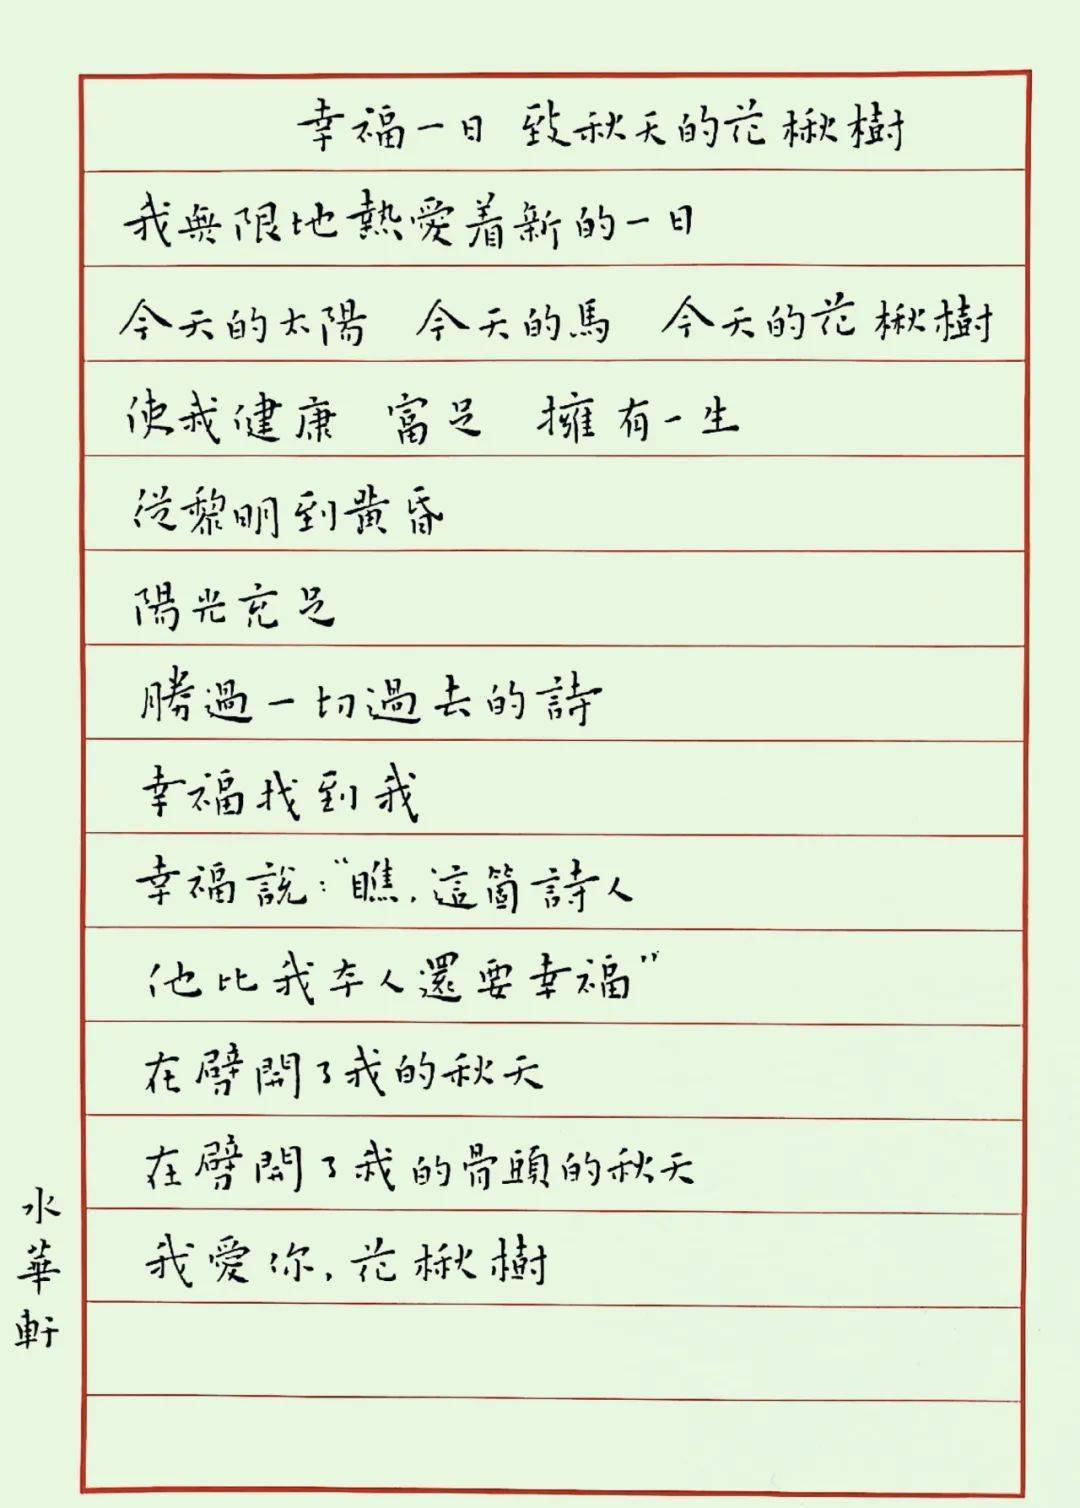 幸福一日 致秋天的花楸樹
我無限地熱愛着新的一日
今天的太陽 今天的馬 今天的花楸樹
使我健康 富足 擁有一生
從黎明到黃昏
陽光充足
勝過一切過去的詩
幸福找到我
幸福說：“瞧，這箇詩人
他比我本人還要幸福”
在劈開了我的秋天
在劈開了我的骨頭的秋天
我愛你，花楸樹
水華軒